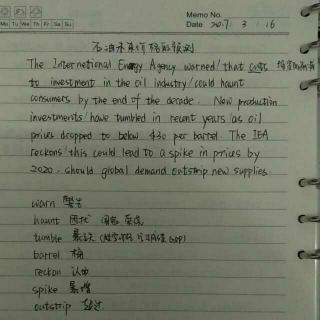 Memo No.
Mo Tu We Th Fr Sa Su
Date 2017. 3. 16
石油未来价格的预测
The International Energy Agency warned that cuts
to investment in the oil industry could haunt
consumers by the end of the decade. New production
investments have tumbled in recent years as oil
prices dropped to below $30 per barrel. The IEA
reckons this could lead to a spike in prices by
2020, should global demand outstrip new supplies.
warn 警告
haunt
tumble 暴跌
barrel 桶
reckon 认为
spike 暴增
outstrip 超过